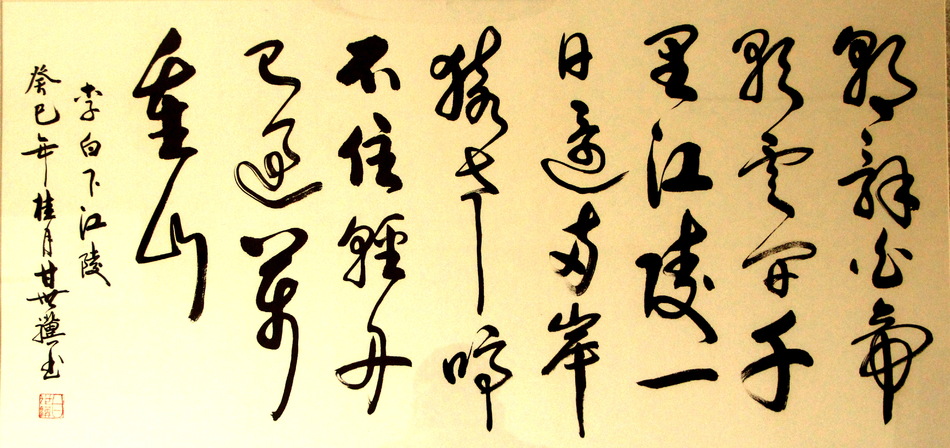 朝辭白帝
彩雲间千
里江陵一
日還兩岸
猿声啼
不住輕舟
已過萬
重山
李白下江陵
癸巳年桂月甘世书